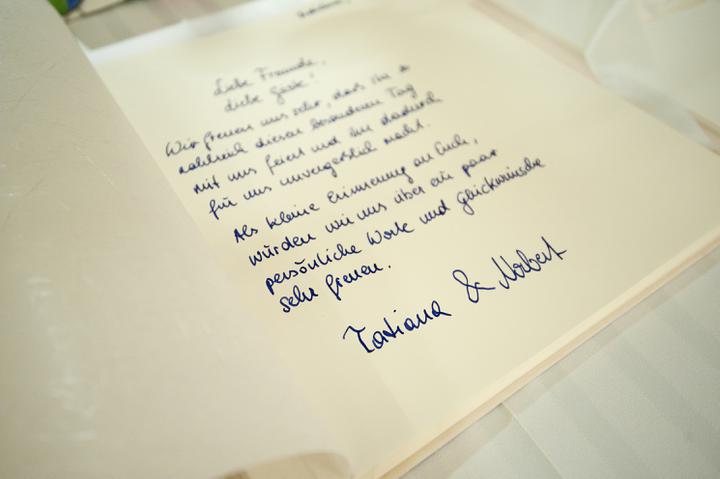 Liebe Freunde,
liebe Gäste!
Wir freuen uns sehr, dass ihr so
zahlreich diesen besonderen Tag
mit uns feiert und ihn dadurch
für uns unvergesslich macht.
Als kleine Erinnerung an Euch,
würden wir uns über ein paar
persönliche Worte und Glückwünsche
sehr freuen.
Tatiana & Norbert